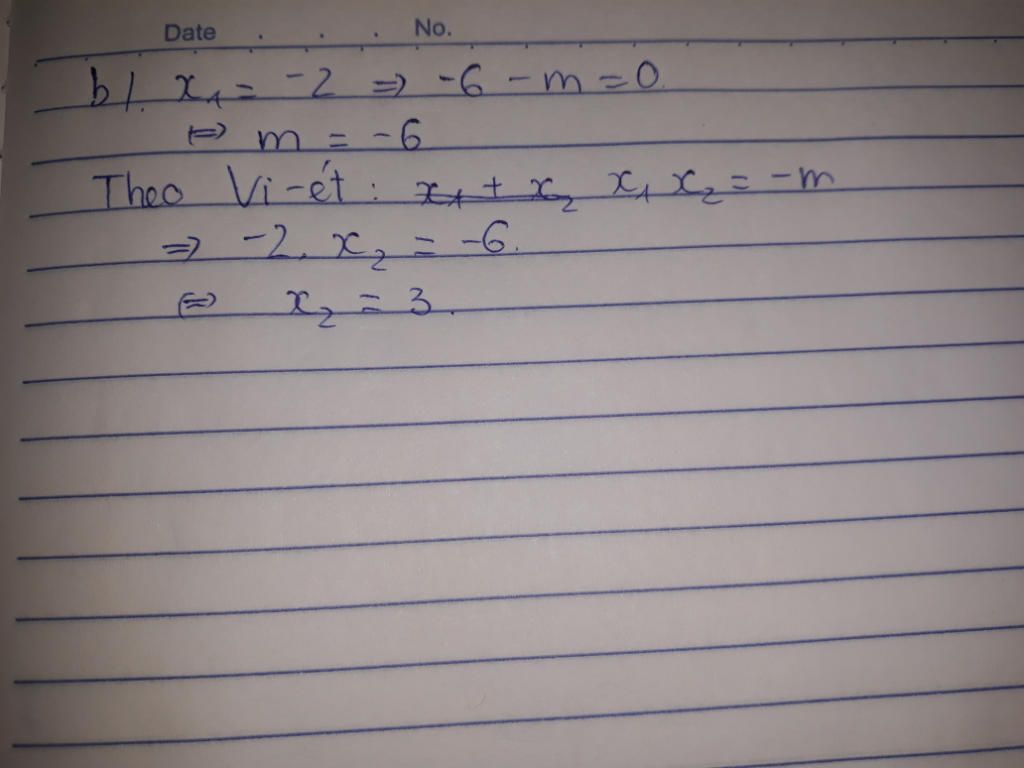 Date . . . No.
b/. x₁ = -2 => -6 - m = 0.
<=> m = -6
Theo Vi-ét: x₁ + x₂ x₁ x₂ = -m
=> -2. x₂ = -6.
<=> x₂ = 3.